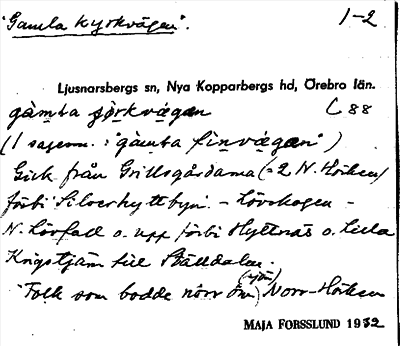 "Gamla kyrkvägen". 1-2
Ljusnarsbergs sn, Nya Kopparbergs hd, Örebro län.
gàmta ʂörkvägan C 88
(I sagesm.: "gàmta finvägan")
Gick från Grillsgårdarna (=2 N. Hörken)
förbi Silverhyttbyn - Lövskogen -
N. Lövfall o. upp förbi Hyttnäs o. Lilla
Krigstjärn till Ställdalen.
"Folk som bodde norr om (sjön) Norr-Hörken
MAJA FORSSLUND 1932